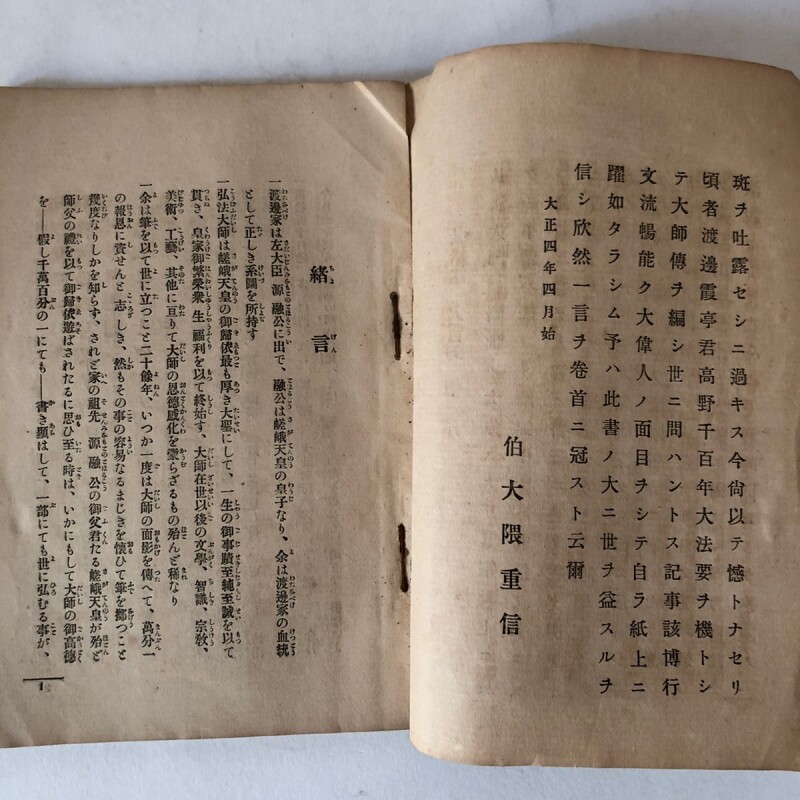 斑ヲ吐露セシニ過キス今尙以テ憾トナセリ
頃者渡邊霞亭君高野千百年大法要ヲ機トシ
テ大師傳ヲ編シ世ニ問ハントス記事該博行
文流暢能ク大偉人ノ面目ヲシテ自ラ紙上ニ
躍如タラシム予ハ此書ノ大ニ世ヲ益スルヲ
信シ欣然一言ヲ卷首ニ冠スト云爾
大正四年四月始
伯大隈重信
緖言
一渡邊家は左大臣源融公に出で、融公は嵯峨天皇の皇子なり、余は渡邊家の血統
として正しき系圖を所持す
一弘法大師は嵯峨天皇の御歸依最も厚き大聖にして、一生の御事蹟至純至誠を以て
貫き、皇家御繁榮衆生福利を以て終始す、大師在世以後の文學、智識、宗敎、
美術、工藝、其他に亙りて大師の恩德感化を蒙らざるもの殆んど稀なり
一余は筆を以て世に立つこと二十餘年、いつか一度は大師の面影を傳へて、萬分一
の報恩に資せんと志しき、然もその事の容易なるまじきを懷ひて筆を擲つこと
幾度なりしかを知らず、されど家の祖先源融公の御父君たる嵯峨天皇が殆ど
師父の禮を以て御歸依遊ばされたるに思ひ至る時は、いかにもして大師の御高德
を――假し千萬百分の一にても――書き顯はして、一部にても世に弘むる事が、
1